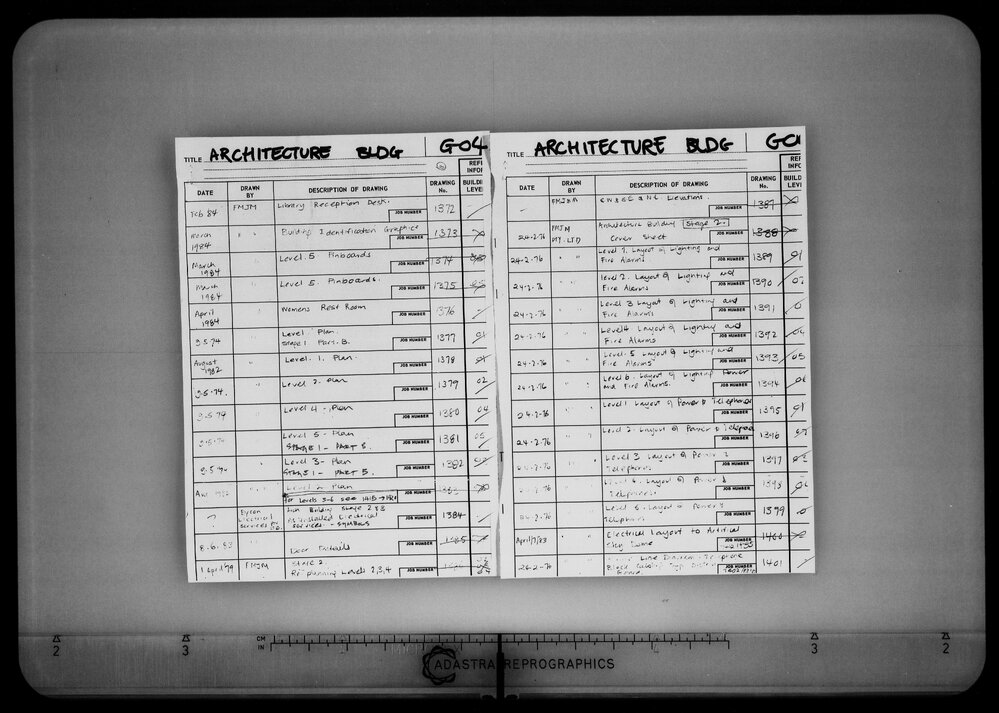 TITLE ARCHITECTURE BLDG G04
DATE DRAWN BY DESCRIPTION OF DRAWING DRAWING No. BUILDI LEVE
REFE INFOR
Feb 84 FMJM Library Reception Desk. JOB NUMBER 1372
March 1984 " " Building Identification Graphics JOB NUMBER 1373
March 1984 Level 5 Pinboards JOB NUMBER 1374
March 1984 Level 5 Pinboards. JOB NUMBER 1375
April 1984 Womens Rest Room JOB NUMBER 1376
9.5.74 Level Plan. JOB NUMBER 1377 01
Stage 1 Part B.
August 1982 Level. 1. Plan. JOB NUMBER 1378 01
9.5.74. Level 2. Plan JOB NUMBER 1379 02
9.5.74 Level 4 - Plan JOB NUMBER 1380 04
Level 5 - Plan JOB NUMBER 1381 05
STAGE 1 - PART B.
Level 3 - Plan JOB NUMBER 1382
STAGE 1 - PART B.
Level 2 Plan JOB NUMBER
for Levels 3-6 see
? Byron Electrical Services Building Stage 2 & 3 JOB NUMBER 1384
Electrical
Services - Symbols
8.6.83 Door Details JOB NUMBER
1 April 79 FMJM Stage 2 JOB NUMBER
Re-planning Levels 2,3,4
TITLE ARCHITECTURE BLDG
DATE DRAWN BY DESCRIPTION OF DRAWING DRAWING No. BUILD LEVE
REF INFO
Elevations. JOB NUMBER 1387
24.2.76 FMJM PTY. LTD Architecture Building Stage 2. JOB NUMBER 1388
Cover Sheet
24.2.76 " " Level 1. Layout of Lighting and JOB NUMBER 1389 01
Fire Alarms.
24.2.76 Level 2. Layout of Lighting and JOB NUMBER 1390 02
Fire Alarms
24.2.76 Level 3 Layout of Lighting and JOB NUMBER 1391
Fire Alarms
24.2.76 Level 4 Layout of Lighting and JOB NUMBER 1392
Fire Alarms
24.2.76 Level. 5 Layout of Lighting and JOB NUMBER 1393 05
Fire Alarms
24.2.76 Level 6. Layout of Lighting Power JOB NUMBER 1394
and Fire Alarms.
24.2.76 Level 1 Layout of Power & Telephones JOB NUMBER 1395 01
24.2.76 Level 2. Layout of Power & JOB NUMBER 1396
Level 3 Layout of Power & JOB NUMBER 1397
Telephones.
Layout of Power & JOB NUMBER 1398
Telephones
Level 5. Layout of Power & JOB NUMBER 1399
Telephones
April/7/83 Electrical Layout to Artificial JOB NUMBER 1400
Sky Dome
26.2.76 Line Diagram Telephone JOB NUMBER 1401
Block
CM
IN
2 3 3 2
ADASTRA REPROGRAPHICS